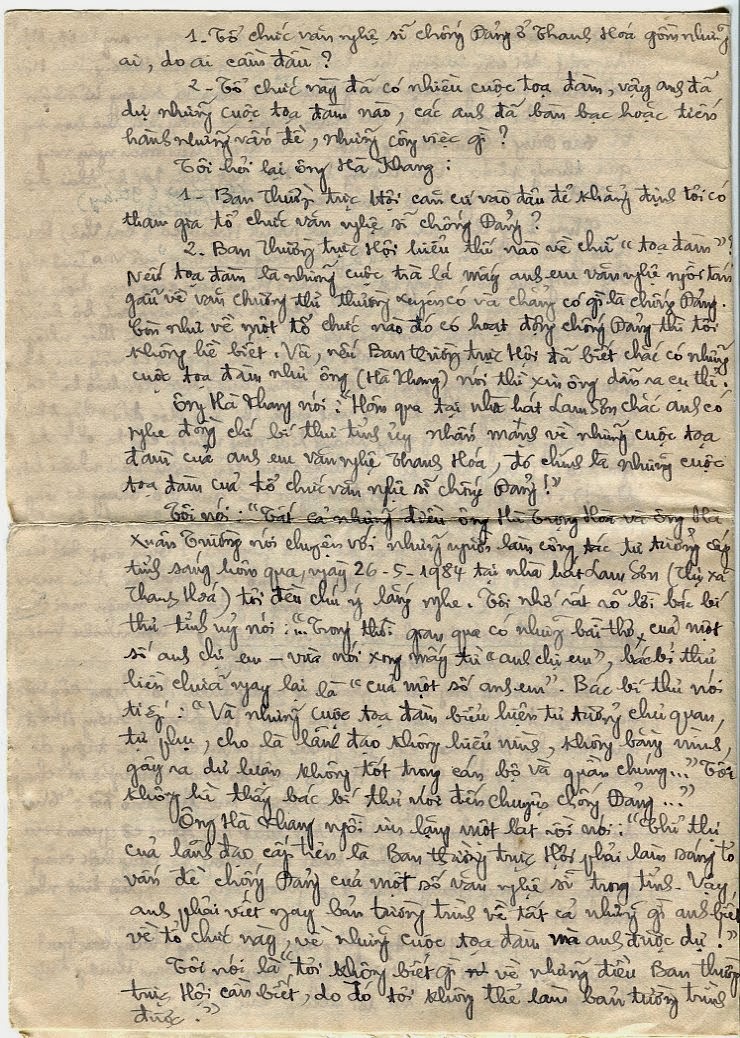 1- Tổ chức văn nghệ sĩ chống Đảng ở Thanh Hoá gồm những
ai, do ai cầm đầu ?
2- Tổ chức này đã có nhiều cuộc toạ đàm, vậy anh đã
dự những cuộc toạ đàm nào, các anh đã bàn bạc hoặc tiến
hành những vấn đề, những công việc gì ?
Tôi hỏi lại ông Hà Khang :
1- Ban Thường trực Hội căn cứ vào đâu để khẳng định tôi có
tham gia tổ chức văn nghệ sĩ chống Đảng ?
2. Ban Thường trực Hội hiểu thế nào về chữ "toạ đàm" ?
Nếu toạ đàm là những cuộc trà lá mấy anh em văn nghệ ngồi tán
gẫu về văn chương thì thường xuyên có và chẳng có gì là chống Đảng.
Còn như về một tổ chức nào đó có hoạt động chống Đảng thì tôi
không hề biết. Và, nếu Ban thường trực Hội đã biết chắc có những
cuộc toạ đàm như ông (Hà Khang) nói thì xin ông dẫn ra cụ thể.
Ông Hà Khang nói : "Hôm qua tại nhà hát Lam Sơn chắc anh có
nghe đồng chí bí thư tỉnh ủy nhấn mạnh về những cuộc toạ
đàm của anh em văn nghệ Thanh Hóa, đó chính là những cuộc
toạ đàm của tổ chức văn nghệ sĩ chống Đảng !"
Tôi nói : "Tất cả những điều ông Hà Trọng Hoà và ông Hà
Xuân Trường nói chuyện với những người làm công tác tư tưởng cấp
tỉnh sáng hôm qua, ngày 26-5-1984 tại nhà hát Lam Sơn (Thị xã
Thanh Hoá) tôi đều chú ý lắng nghe. Tôi nhớ rất rõ lời bác bí
thư tỉnh uỷ nói : "...Trong thời gian qua có những bài thơ của một
số anh chị em – vừa nói xong mấy từ "anh chị em", bác bí thư
liền chữa ngay lại là "của một số anh em". Bác bí thư nói
tiếp : "Và những cuộc toạ đàm biểu hiện tư tưởng chủ quan,
tự phụ, cho là lãnh đạo không hiểu mình, không bằng mình,
gây ra dư luận không tốt trong cán bộ và quần chúng..." Tôi
không hề thấy bác bí thư nói đến chuyện chống Đảng ..."
Ông Hà Khang ngồi im lặng một lát rồi nói : "Chỉ thị
của lãnh đạo cấp trên là Ban thường trực Hội phải làm sáng tỏ
vấn đề chống Đảng của một số văn nghệ sĩ trong tỉnh. Vậy
anh phải viết ngay bản tường trình về tất cả những gì anh biết
về tổ chức này, về những cuộc toạ đàm mà anh được dự !"
Tôi nói là "tôi không biết gì về những điều Ban thường
trực Hội cần biết, do đó tôi không thể làm bản tường trình
được."